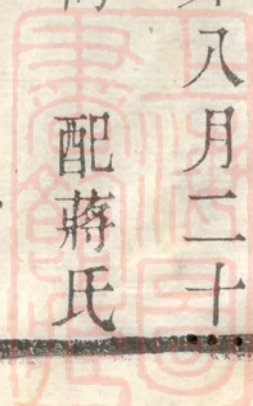 八月二十
配蔣氏